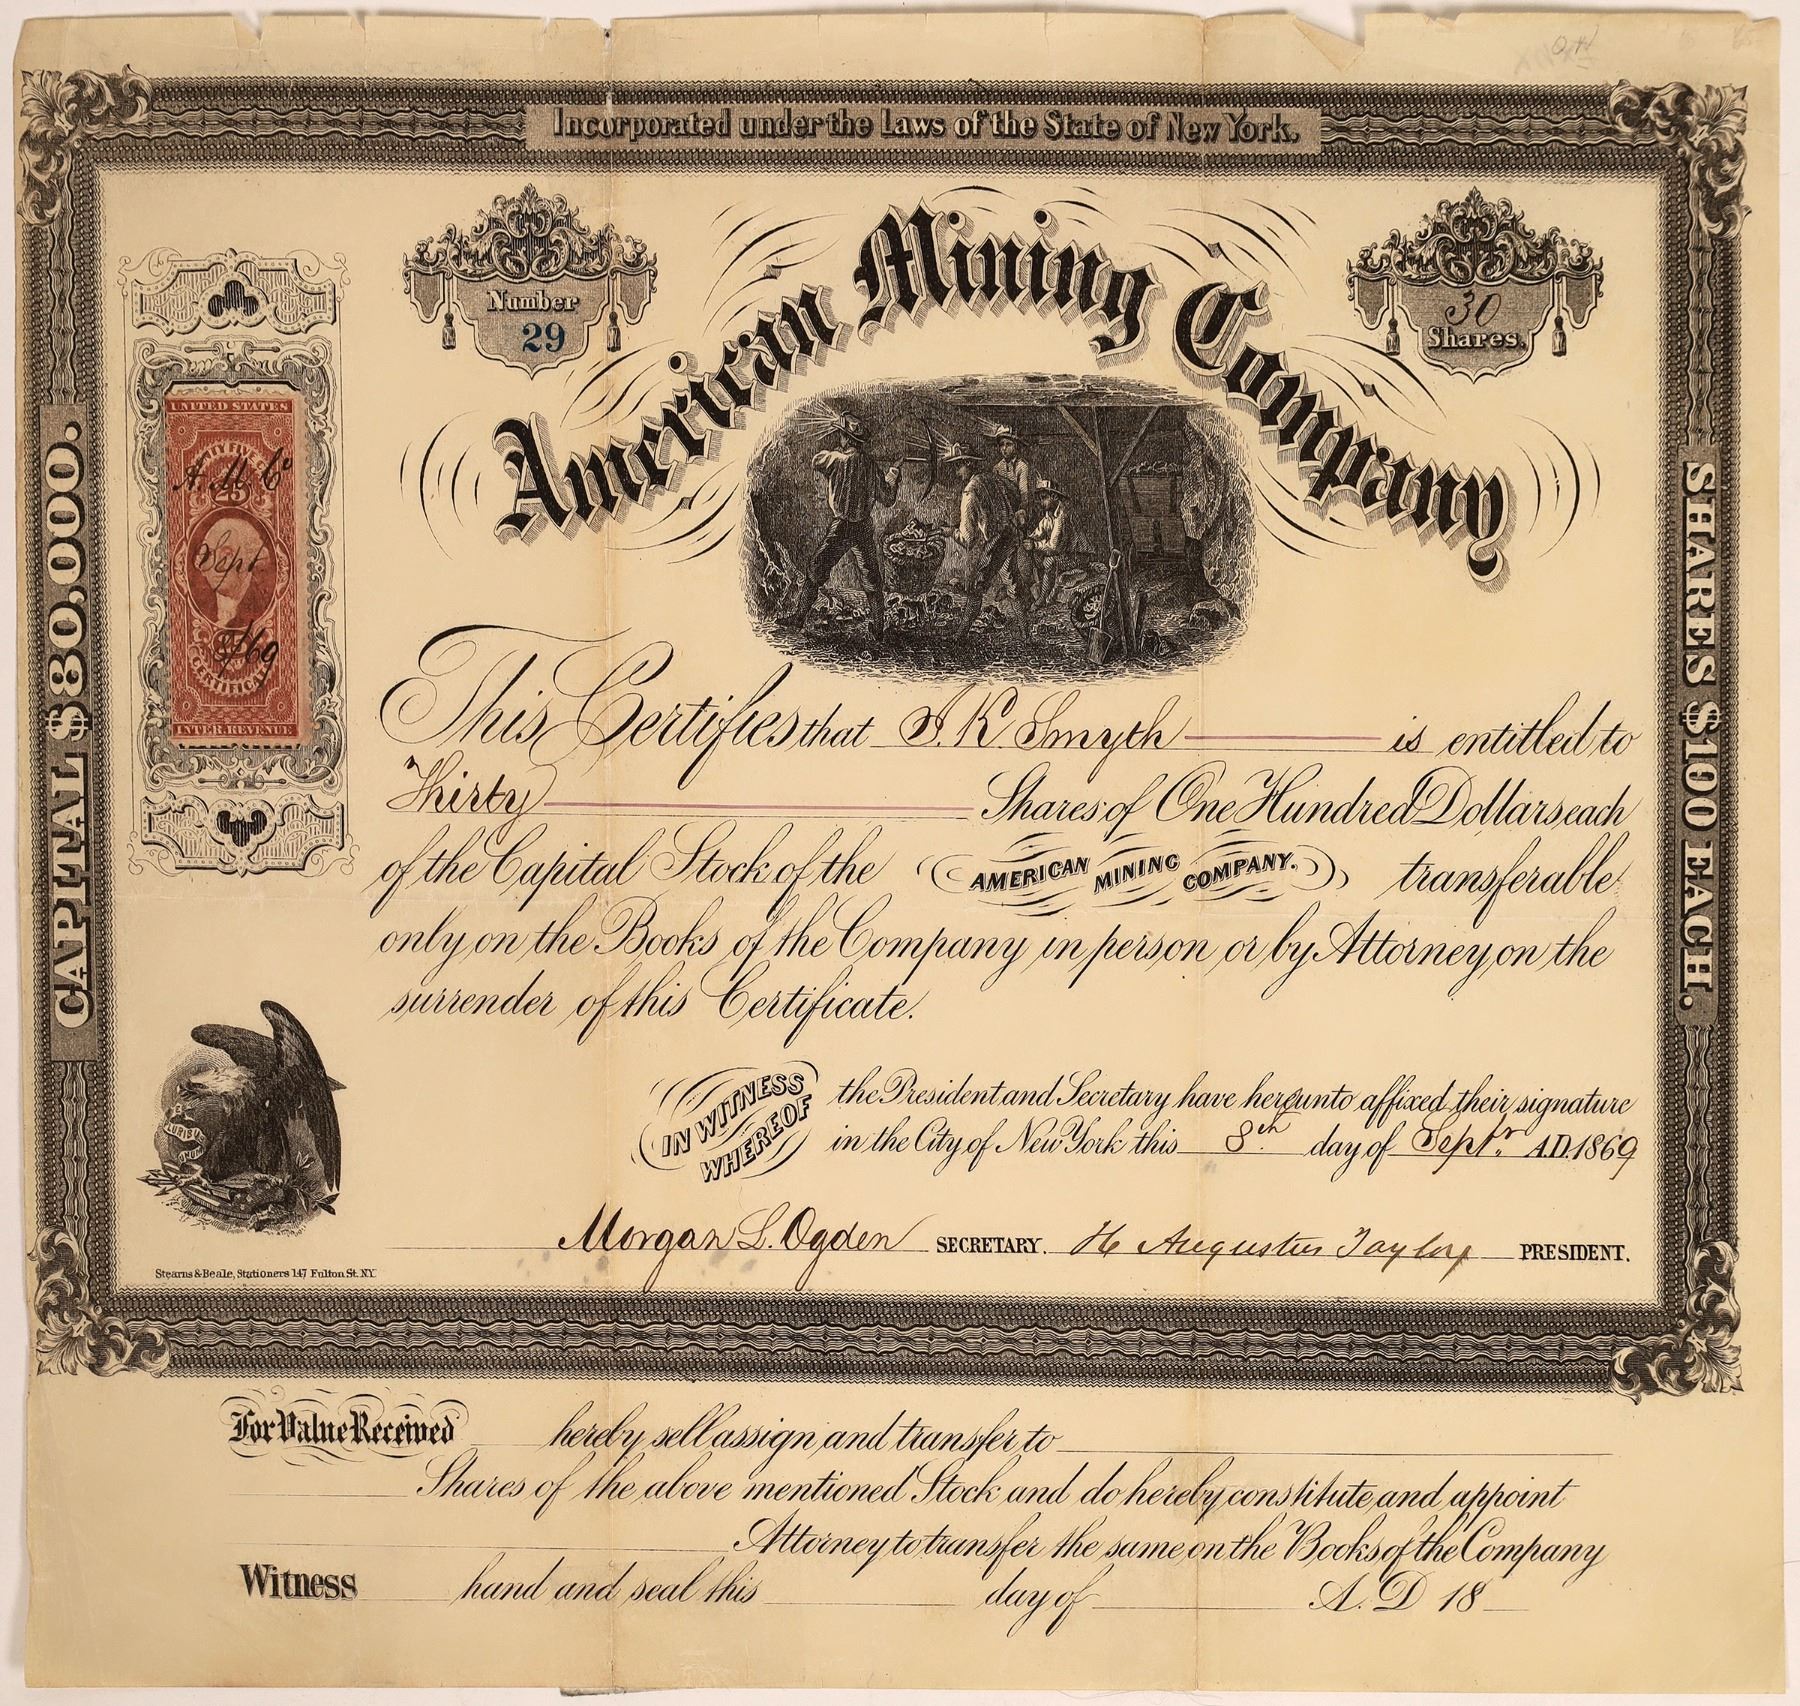 Incorporated under the Laws of the State of New York.
Number
29
American Mining Company
30
Shares.
CAPITAL $80,000.
SHARES $100 EACH.
UNITED STATES
A. M. Co
25
Sept
8/69
CERTIFICATE
INTER. REVENUE
This Certifies that S. K. Smyth is entitled to
Thirty Shares of One Hundred Dollars each
of the Capital Stock of the AMERICAN MINING COMPANY. transferable
only on the Books of the Company in person or by Attorney on the
surrender of this Certificate.
IN WITNESS WHEREOF the President and Secretary have hereunto affixed their signature
in the City of New York this 8th day of Septr A.D. 1869
Morgan L. Ogden SECRETARY. H Augustus Taylor PRESIDENT.
Stearns & Beale, Stationers 147 Fulton St. NY
For Value Received hereby sell assign and transfer to
Shares of the above mentioned Stock and do hereby constitute and appoint
Attorney to transfer the same on the Books of the Company
Witness hand and seal this day of A.D. 18